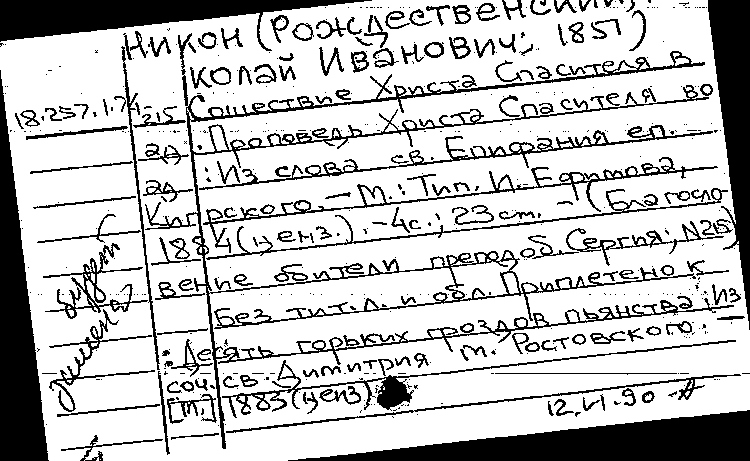 Никон (Рождественский,
колай Иванович; 1851)
18.257.1.74-215 Сошествие Христа Спасителя в
ад: Проповедь Христа Спасителя во
ад: Из слова св. Епифания еп.
Кипрского. - М.: Тип. И. Ефимова,
1884 (ценз.). - 4с.; 23 см. - (Благосло-
вение обители преподоб. Сергия; N215)
Без тит.л. и обл. Приплетено к
: Десять горьких гроздов пьянства: Из
соч. св. Димитрия м. Ростовского. -
[М.], 1883 (ценз)
12.VI.90
будет
замена